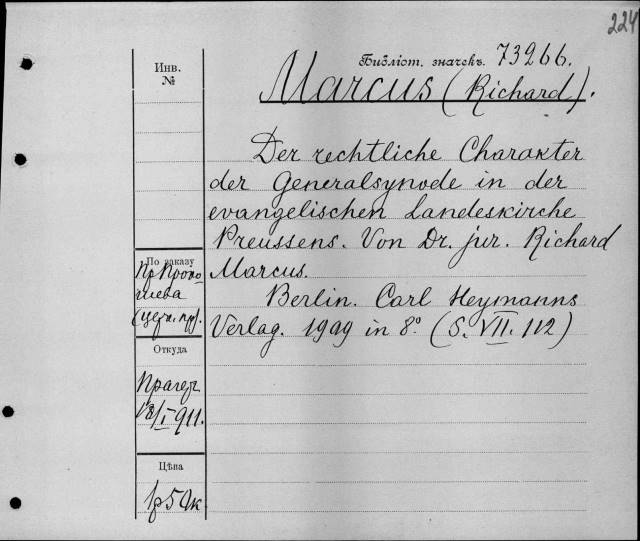 224
Библіот. значекъ. 73266.
Инв.
№
Marcus (Richard).
Der rechtliche Charakter
der Generalsynode in der
evangelischen Landeskirche
Preussens. Von Dr. jur. Richard
Marcus.
Berlin. Carl Heymanns
Verlag. 1909 in 8° (S. VII. 112)
По заказу
(церк. пр).
Откуда
Прагеръ
911.
Цѣна